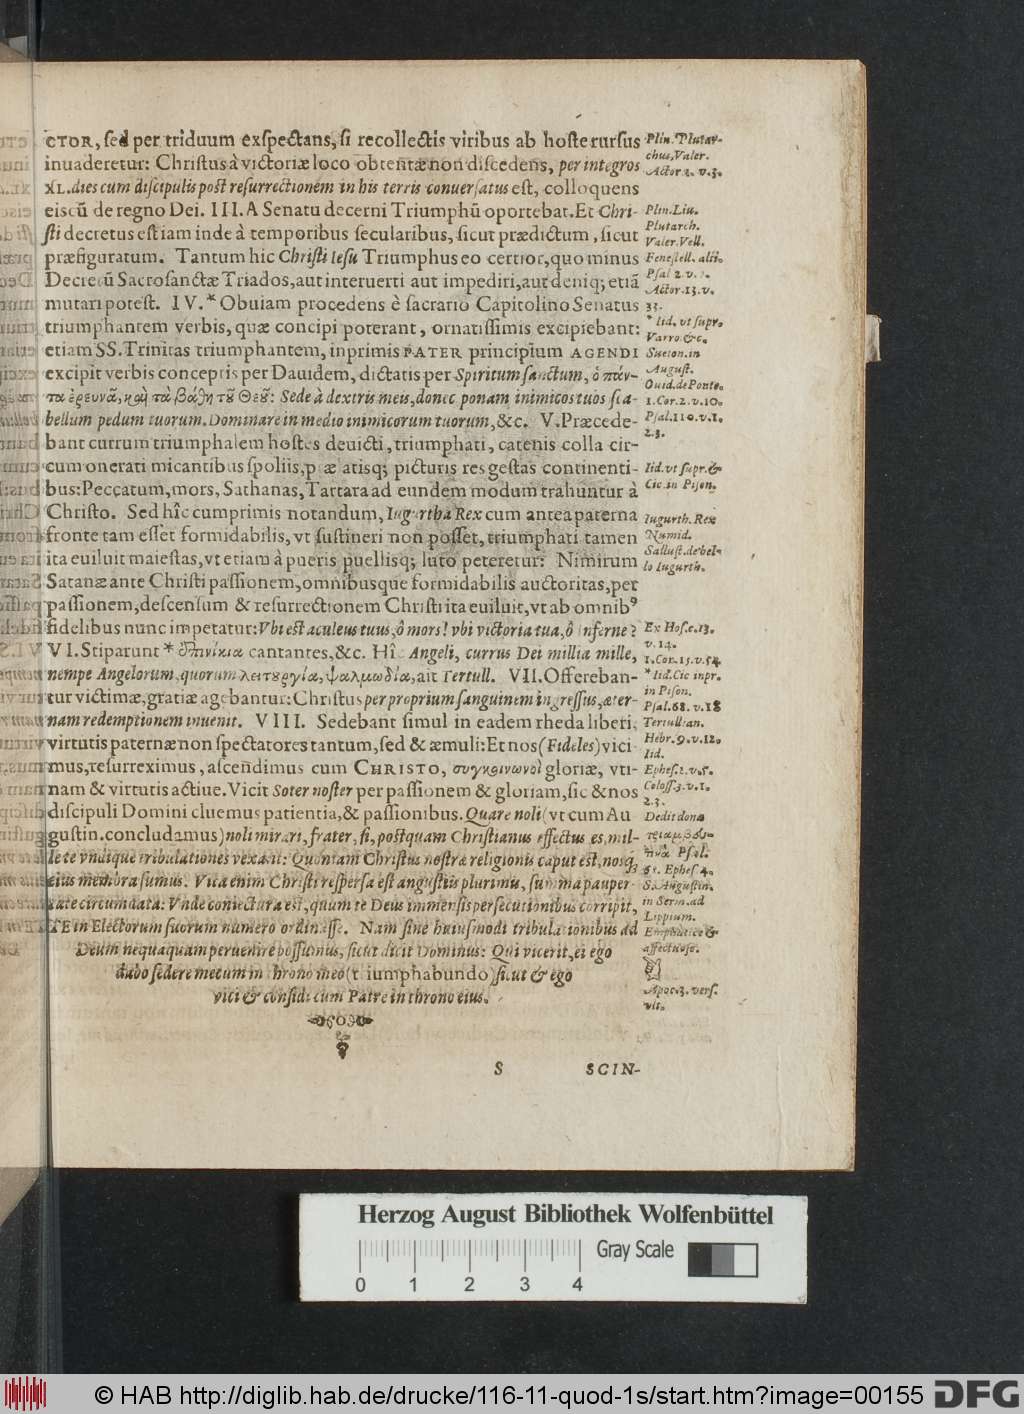 CTOR, sed per triduum exspectans, si recollectis viribus ab hoste rursus
inuaderetur: Christus à victoriæ loco obtentæ non discedens, per integros
XL. dies cum discipulis post resurrectionem in his terris conuersatus est, colloquens
eiscū de regno Dei. III. A Senatu decerni Triumphū oportebat. Et Chri-
sti decretus est iam inde à temporibus secularibus, sicut prædictum, sicut
præfiguratum. Tantum hic Christi Iesu Triumphus eo certior, quo minus
Decretū Sacrosanctæ Triados, aut interuerti aut impediri, aut deniq; etiā
mutari potest. IV. * Obuiam procedens è sacrario Capitolino Senatus
triumphantem verbis, quæ concipi poterant, ornatissimis excipiebant:
etiam SS. Trinitas triumphantem, inprimis PATER principium AGENDI
excipit verbis conceptis per Dauidem, dictatis per Spiritum sanctum, ὁ πάν-
τα ἐρευνᾶ, καὶ τὰ βάθη τȣ͂ Θεȣ͂: Sede à dextris meis, donec ponam inimicos tuos sca-
bellum pedum tuorum. Dominare in medio inimicorum tuorum, &c. V. Præcede-
bant currum triumphalem hostes deuicti, triumphati, catenis colla cir-
cum onerati micantibus spoliis, præ atisq; picturis res gestas continenti-
bus: Peccatum, mors, Sathanas, Tartara ad eundem modum trahuntur à
Christo. Sed hîc cumprimis notandum, Iugurtha Rex cum antea paterna
fronte tam esset formidabilis, vt sustineri non posset, triumphati tamen
ita euiluit maiestas, vt etiam à pueris puellisq; luto peteretur: Nimirum
Satanæ ante Christi passionem, omnibusque formidabilis auctoritas, per
passionem, descensum & resurrectionem Christi ita euiluit, vt ab omnibꝰ
fidelibus nunc impetatur: Vbi est aculeus tuus, ô mors! vbi victoria tua, ô Inferne?
VI. Stiparunt * ἐπινίκια cantantes, &c. Hîc Angeli, currus Dei millia mille,
nempe Angelorum, quorum λειτȣργία, ψαλμωδία, ait Tertull. VII. Offereban-
tur victimæ, gratiæ agebantur: Christus per proprium sanguinem ingressus, æter-
nam redemptionem inuenit. VIII. Sedebant simul in eadem rheda liberi,
virtutis paternæ non spectatores tantum, sed & æmuli: Et nos (Fideles) vici-
mus, resurreximus, ascendimus cum CHRISTO, συγκοινωνοὶ gloriæ, vti-
nam & virtutis actiue. Vicit Soter noster per passionem & gloriam, sic & nos
discipuli Domini cluemus patientia, & passionibus. Quare noli (vt cum Au
gustin. concludamus) noli mirari, frater, si, postquam Christianus effectus es, mil-
le te vndique tribulationes vexant: Quoniam Christus nostræ religionis caput est, nosq́;
eius membra sumus. Vita enim Christi respersa est angustiis plurimis, summa pauper-
tate circumdata: Vnde coniectura est, quum te Deus immensis persecutionibus corripit,
TE in Electorum suorum numero ordinasse. Nam sine huiusmodi tribulationibus ad
Deum nequaquam peruenire possumus, sicut dicit Dominus: Qui vicerit, ei ego
dabo sedere mecum in throno meo (triumphabundo) sicut & ego
vici & consedi cum Patre in throno eius.
S SCIN-
Plin. Plutar-
chus, Valer.
Actor 1. v. 3.
Plin. Liu.
Plutarch.
Valer. Vell.
Fenestell. alii.
Psal 2. v. 7.
Actor. 13. v.
33.
* Iid. vt supr.
Varro &c.
Sueton. in
August.
Ouid. de Ponto.
1. Cor. 2. v. 10.
Psal. 110. v. 1.
2. 3.
Iid. vt supr. &
Cic. in Pison.
Iugurth. Rex
Numid.
Sallust. de bel-
lo Iugurth.
Ex Hos. c. 13.
v. 14.
1. Cor. 15. v. 54
* Iid. Cic inpr.
in Pison.
Psal. 68. v. 18
Tertullian.
Hebr. 9. v. 12.
Iid.
Ephes. 2. v. 5.
Coloss. 3. v. 1.
2. 3.
Dedit dona
Psal.
Ephes 4.
S. Augustin.
in Serm. ad
Lippium.
Emphatice &
affectuose.
Apoc. 3. vers.
vlt.
Herzog August Bibliothek Wolfenbüttel
Gray Scale
0 1 2 3 4
© HAB http://diglib.hab.de/drucke/116-11-quod-1s/start.htm?image=00155
DFG